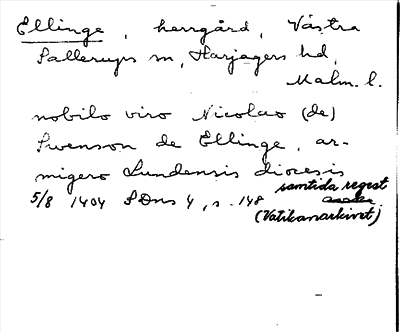 Ellinge, herrgård, Västra
Sallerups sn, Harjagers hd,
Malm. l.
nobilo viro Nicolao (de)
Swenson de Ellinge, ar-
migero Lundensis diocesis
samtida regest
5/8 1404 SDns 4, s. 148
(Vatikanarkivet)